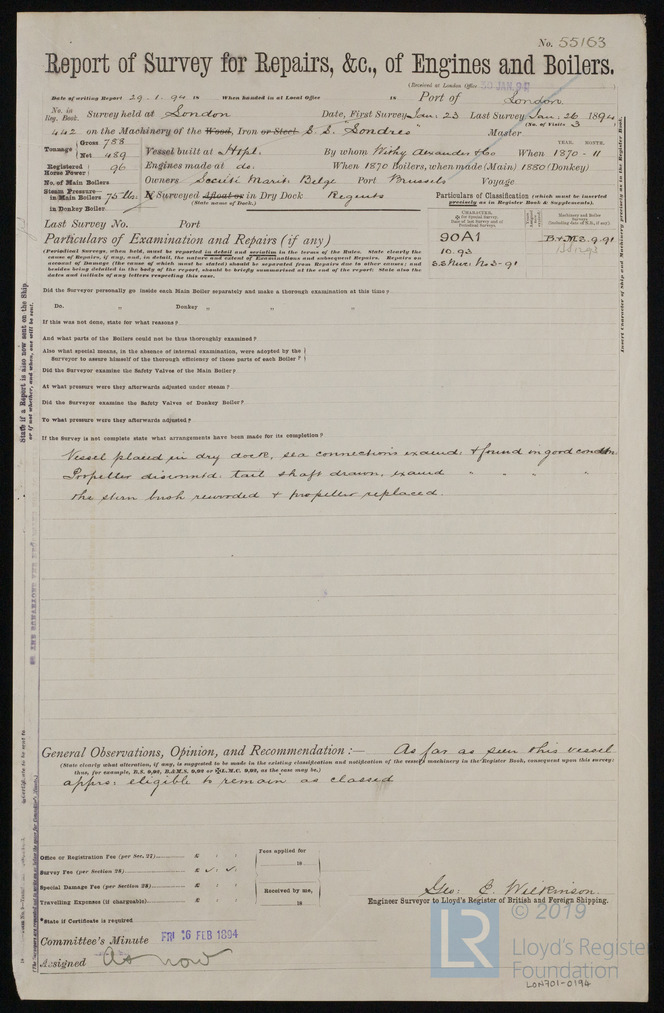 No. 55163
Report of Survey for Repairs, &c., of Engines and Boilers.
(Received at London Office 30 JAN. 94)
Date of writing Report 29.1.94 18 When handed in at Local Office 18 Port of London.
No. in Reg. Book. Survey held at London Date, First Survey Jan: 23 Last Survey Jan: 26 1894
(No. of Visits 3)
442 on the Machinery of the Wood, Iron or Steel S.S. "Londres" Master
Tonnage Gross 788 Net 489
YEAR. MONTH.
Vessel built at Htpl. By whom Withy Alexander & Co When 1870 - 11
Registered Horse Power 96 Engines made at do: When 1870 Boilers, when made (Main) 1880 (Donkey)
No. of Main Boilers Owners Société Marit: Belge Port Brussels Voyage
Steam Pressure in Main Boilers 75 lbs: If Surveyed Afloat or in Dry Dock Regents
(State name of Dock.)
in Donkey Boiler
Particulars of Classification (which must be inserted precisely as in Register Book & Supplements).
Last Survey No. Port
CHARACTER.
Machinery and Boiler Surveys
90A1 B&MS.9.91
10.93
S.S. No 3-91
Particulars of Examination and Repairs (if any)
(Periodical Surveys, when held, must be reported in detail and seriatim in the terms of the Rules. State clearly the
cause of Repairs, if any, and, in detail, the nature and extent of Examinations and subsequent Repairs. Repairs on
account of Damage (the cause of which must be stated) should be separated from Repairs due to other causes; and
besides being detailed in the body of the report, should be briefly summarised at the end of the report. State also the
dates and initials of any letters respecting this case.
Did the Surveyor personally go inside each Main Boiler separately and make a thorough examination at this time?
Do. " Donkey " " "
If this was not done, state for what reasons?
And what parts of the Boilers could not be thus thoroughly examined?
Also what special means, in the absence of internal examination, were adopted by the
Surveyor to assure himself of the thorough efficiency of those parts of each Boiler?
Did the Surveyor examine the Safety Valves of the Main Boiler?
At what pressure were they afterwards adjusted under steam?
Did the Surveyor examine the Safety Valves of Donkey Boiler?
To what pressure were they afterwards adjusted?
If the Survey is not complete state what arrangements have been made for its completion?
Vessel placed in dry dock, sea connections examd: & found in good condtn.
Propeller disconntd: tail shaft drawn, examd " " " "
the stern bush rewooded & propeller replaced.
General Observations, Opinion, and Recommendation:— As far as seen this vessel
(State clearly what alteration, if any, is suggested to be made in the existing classification and notification of the vessel's machinery in the Register Book, consequent upon this survey:
thus, for example, B.S. 9,93, B.&M.S. 9,93 or ✠L.M.C. 9,93, as the case may be.)
apprs: eligible to remain as classed
Office or Registration Fee (per Sec. 27) £ : :
Fees applied for
18
Survey Fee (per Section 28) £ : :
Special Damage Fee (per Section 28) £ : :
Received by me,
Travelling Expenses (if chargeable) £ : :
18
Geo: E. Wilkinson.
Engineer Surveyor to Lloyd's Register of British and Foreign Shipping.
*State if Certificate is required
Committee's Minute FRI 16 FEB 1894
Assigned As now
State if a Report is also now sent on the Ship
or if not whether, and when, one will be sent.
Insert Character of Ship and Machinery precisely as in the Register Book.
LR © 2019
Lloyd's Register
Foundation
LON701-0194